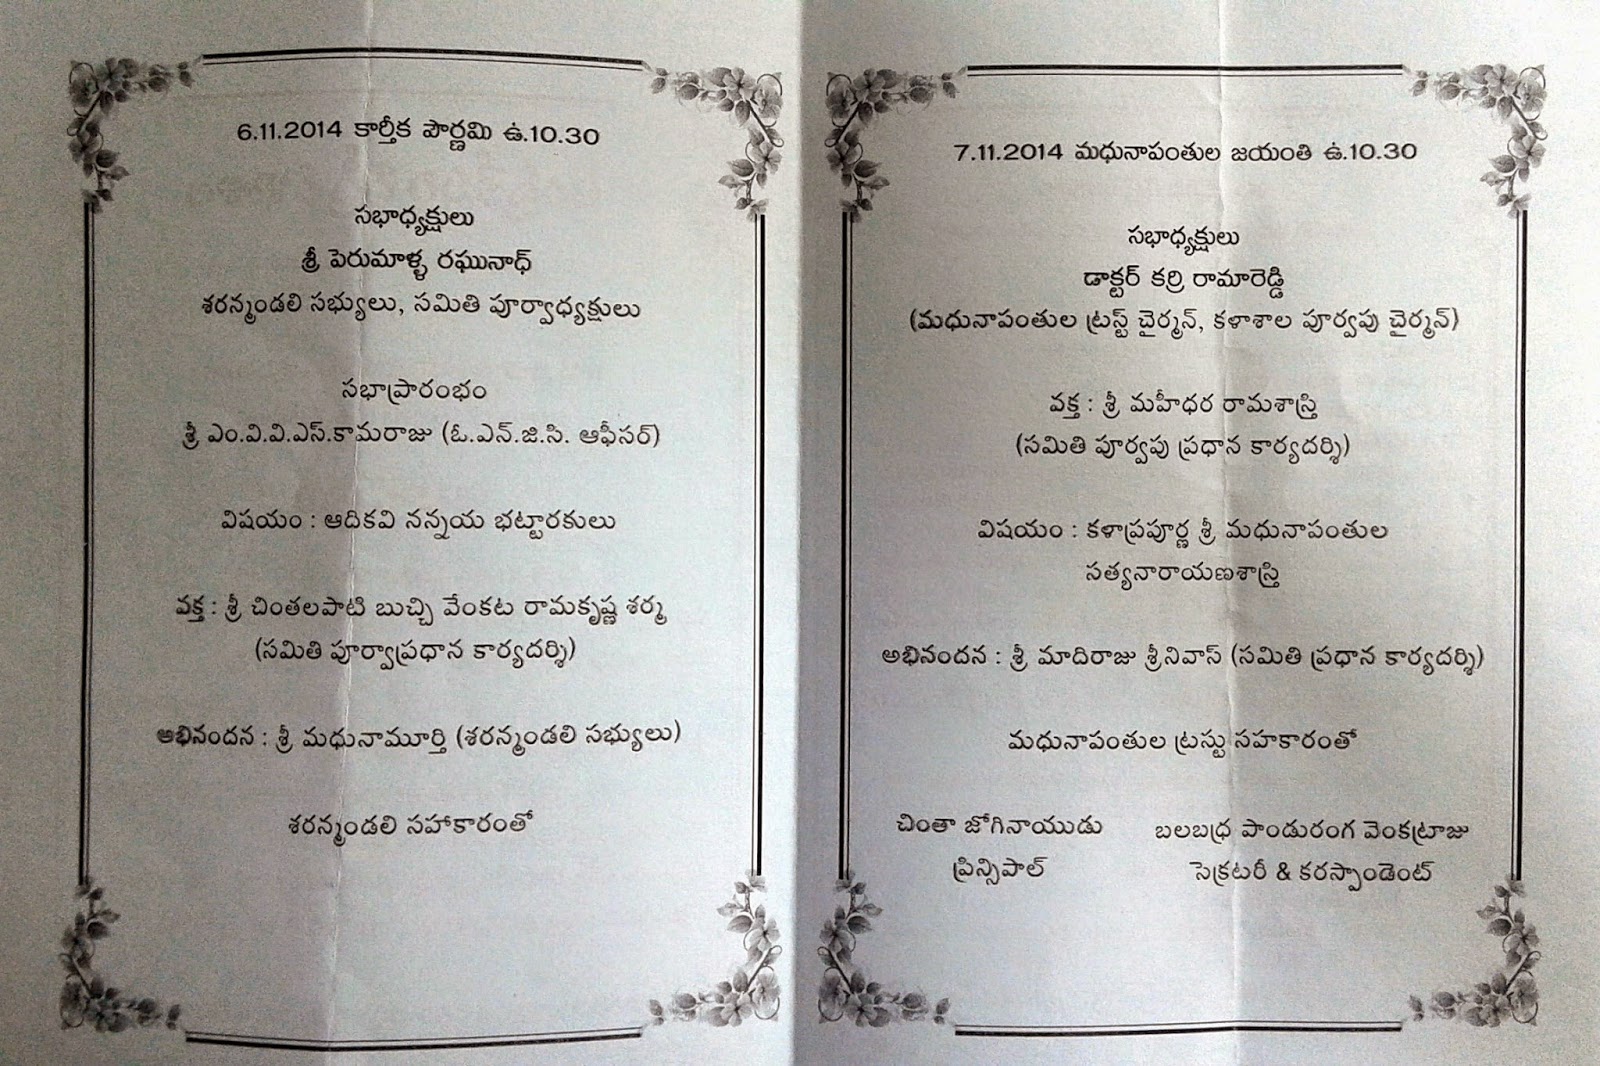 6.11.2014 కార్తీక పౌర్ణమి ఉ.10.30
సభాధ్యక్షులు
శ్రీ పెరుమాళ్ళ రఘునాధ్
శరన్మండలి సభ్యులు, సమితి పూర్వాధ్యక్షులు
సభాప్రారంభం
శ్రీ ఎం.వి.వి.ఎస్.కామరాజు (ఓ.ఎన్.జి.సి. ఆఫీసర్)
విషయం : ఆదికవి నన్నయ భట్టారకులు
వక్త : శ్రీ చింతలపాటి బుచ్చి వేంకట రామకృష్ణ శర్మ
(సమితి పూర్వాప్రధాన కార్యదర్శి)
అభినందన : శ్రీ మధునామూర్తి (శరన్మండలి సభ్యులు)
శరన్మండలి సహాకారంతో
7.11.2014 మధునాపంతుల జయంతి ఉ.10.30
సభాధ్యక్షులు
డాక్టర్ కర్రి రామారెడ్డి
(మధునాపంతుల ట్రస్ట్ చైర్మన్, కళాశాల పూర్వపు చైర్మన్)
వక్త : శ్రీ మహీధర రామశాస్త్రి
(సమితి పూర్వపు ప్రధాన కార్యదర్శి)
విషయం : కళాప్రపూర్ణ శ్రీ మధునాపంతుల
సత్యనారాయణశాస్త్రి
అభినందన : శ్రీ మాదిరాజు శ్రీనివాస్ (సమితి ప్రధాన కార్యదర్శి)
మధునాపంతుల ట్రస్టు సహకారంతో
చింతా జోగినాయుడు
ప్రిన్సిపాల్
బలబధ్ర పాండురంగ వెంకట్రాజు
సెక్రటరీ & కరస్పాండెంట్